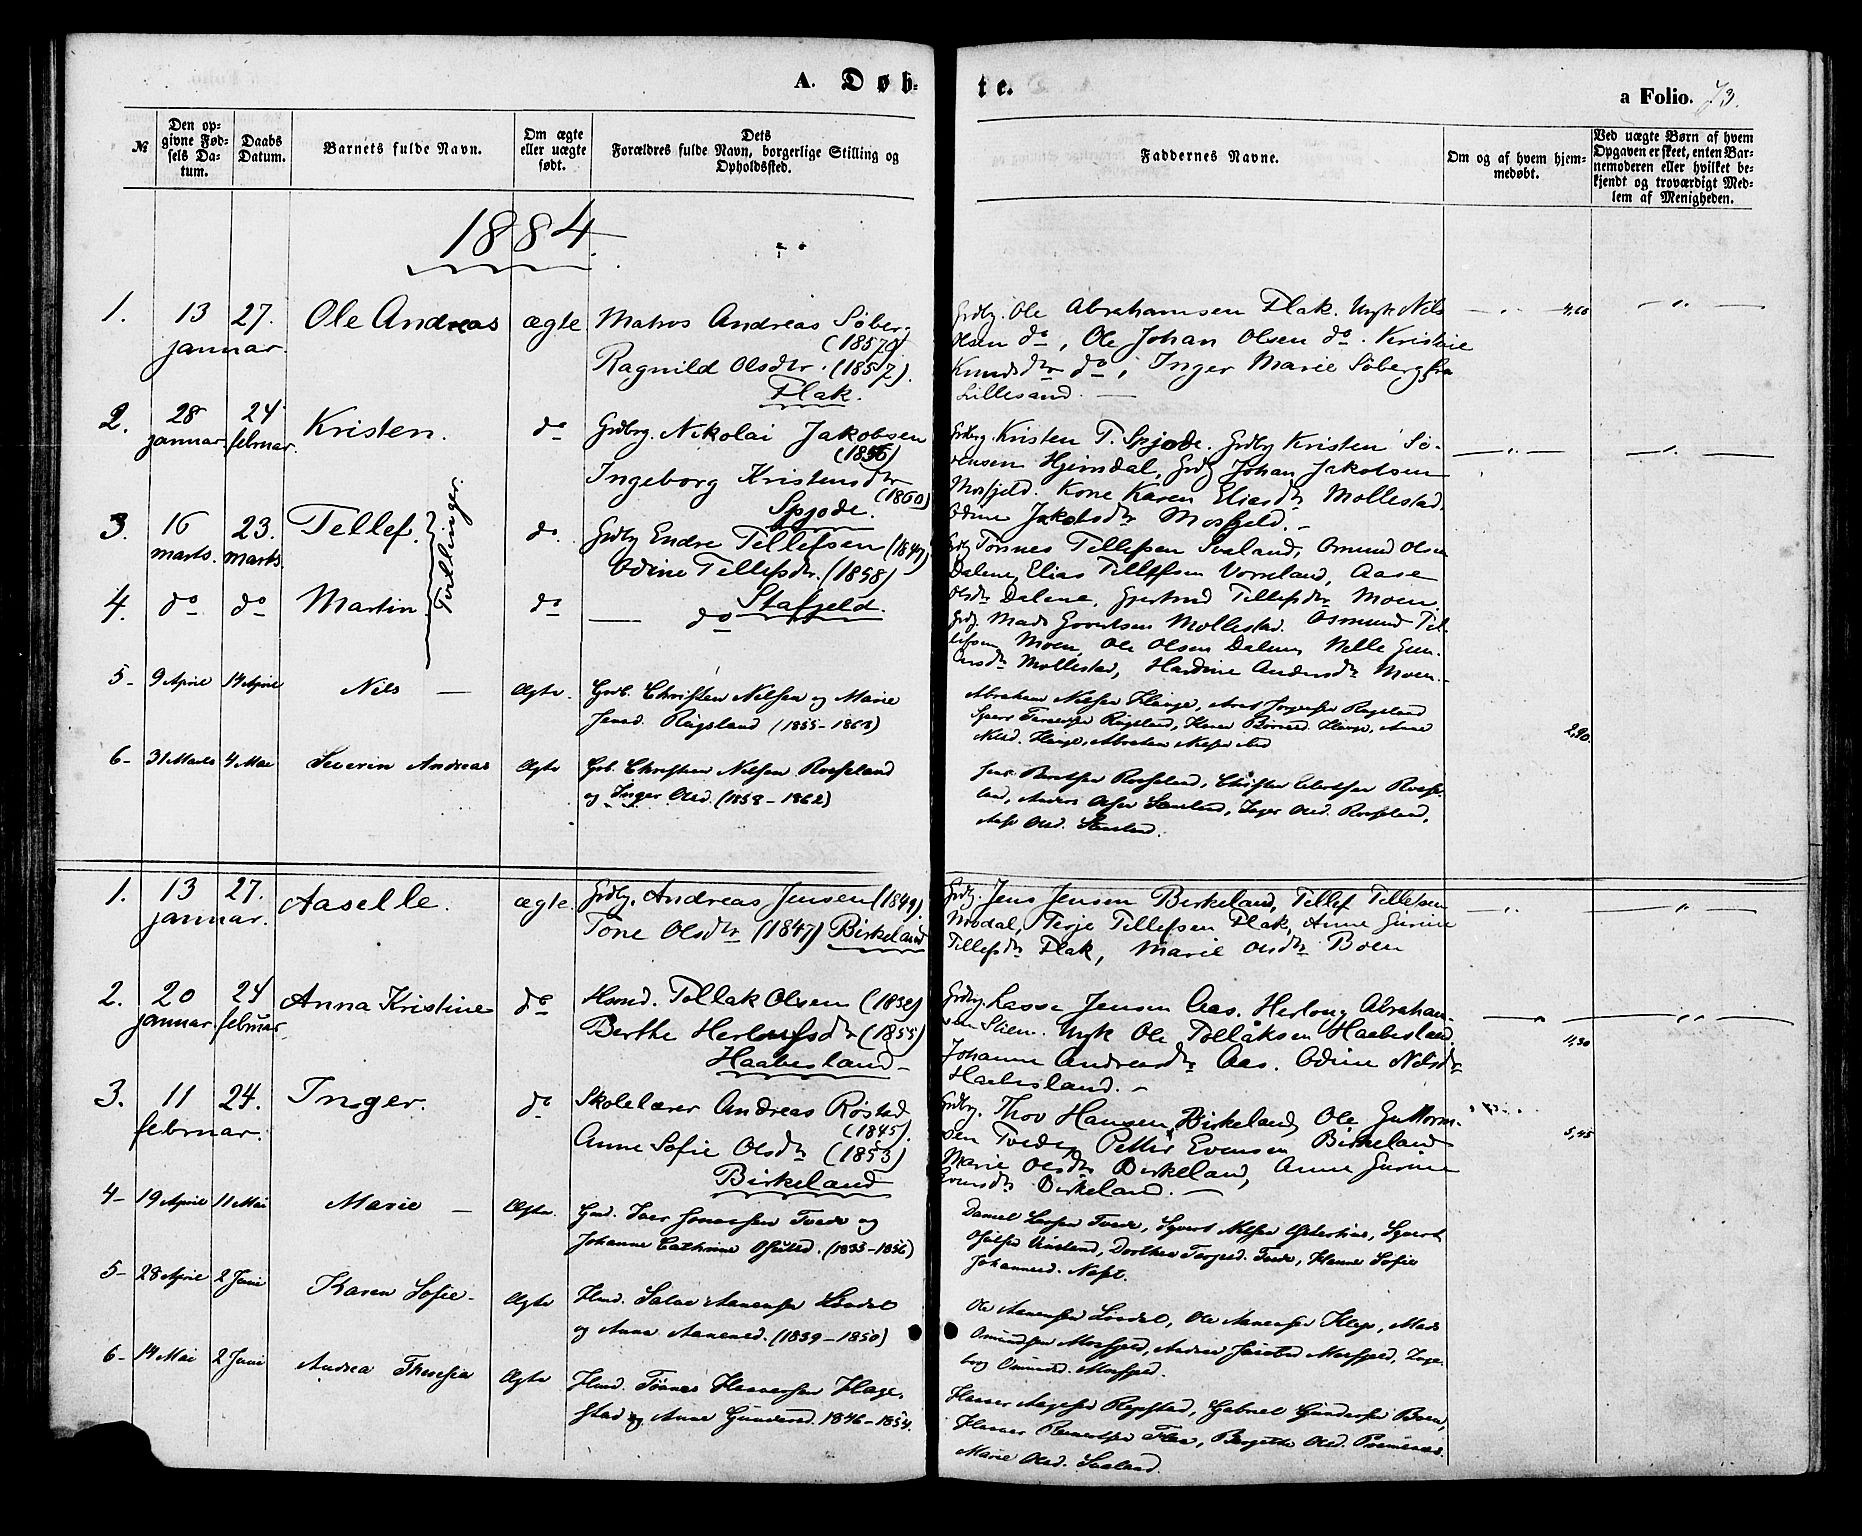 A. Døb-
te.
a Folio. 73.
№
Den op-
givne Fød-
sels Da-
tum.
Daabs
Datum.
Barnets fulde Navn.
Om ægte
eller uægte
født.
Dets
Forældres fulde Navn, borgerlige Stilling og
Opholdssted.
Faddernes Navne.
Om og af hvem hjem-
medøbt.
Ved uægte Børn af hvem
Opgaven er skeet, enten Bar-
nemoderen eller hvilket be-
kjendt og troværdigt Med-
lem af Menigheden.
1884.
1. 13 januar. 27. Ole Andreas ægte Matros Andreas Söberg
(1857)
Ragnild Olsdtr. (1857).
Flak.
Grdbg. Ole Abrahamsen Flak. Ungk Nils
Olsen do, Ole Johan Olsen do. Kristine
Knudsdtr do, Inger Marie Söberg fra
Lillesand. —
4,60
2. 28 januar. 24 februar. Kristen. do Grdbrg. Nikolai Jakobsen
(1856)
Ingeborg Kristensdtr
(1860)
Spjode.
Grdbg. Kristen T. Spjode. Grdbg Kristen Sö-
rensen Heimdal, Grdbg Johan Jakobsen
Mosfjeld. Kone Karen Eliasdtr Mollestad.
Odine Jakobsdtr Mosfjeld. —
3. 16 marts. 23. marts. Tellef. do. Grdbg Endre Tellefsen (1849)
Odine Tellefsdtr. (1858)
Stafjeld.
Tvillinger.
Grdbg Tönnes Tellefsen Svaland, Osmund Olsen
Dalene, Elias Tellefsen Vorreland, Aase
Olsdtr Dalene, Gjertrud Tellefsdtr Moen.
4. do do Martin do — do
Grdbg. Mads Mollestad. Osmund Tel-
lefsen Moen, Ole Olsen Dalene, Nelle Gun-
Mollestad, Hardine Andersdtr Moen.
5- 9 April 14 April Nils — Ægte. Grdb. Christen Nilsen og Marie
Jensd. Rugsland (1855-1863)
Abraham Nilsen
Rugsland
2,90.
6- 31 Marts 4 Mai Severin Andreas Ægte Grb. Christen Nilsen Rosseland
og Inger Olsd. (1858-1862)
Rosseland, Christen
Inger Olsd. Rosseland,
Olsd.
1. 13 januar. 27. Aaselle. ægte. Grdbg. Andreas Jensen (1849).
Tone Olsdtr (1847) Birkeland
Grdbg. Jens Jensen Birkeland, Tellef Tellefsen
Terje Tellefsen Flak, Anne Gurine
Tellefsdtr Flak, Marie Olsdtr Boen
2. 20 januar. 24 februar. Anna Kristine do Hsmd. Tollak Olsen (1832)
Berthe Herlofsdtr (1855)
Haabesland —
Grdbg. Lasse Jensen Aas. Herlong Abraham-
sen Stien. Ungk Ole Tollaksen Haabesland.
Johanne Andreasdtr Aas. Odine Nilsdtr
Haabesland. —
1,30
3. 11 februar. 24. Inger. do Skolelærer Andreas Røstad
(1845).
Anne Sofie Olsdtr (1853)
Birkeland
Grdbg. Thov Hansen Birkeland, Ole Guttorm-
sen Tvede, Petter Evensen Birkeland
Marie Olsdtr Birkeland, Anne Gurine
Evensdtr Birkeland. —
5,45
4- 19 April 11 Mai Marie — Ægte. Gmd. Iver Jonassen Tvede og
Johanne Cathrine Osuld. (1835-1856)
Daniel Larsen Tvede, Syvert Nilsen
Dorthea Terjesd. Tvede, Hanne Sofie
Johannesd.
5- 28 April 2 Juni Karen Sofie — Ægte Hmd. Salve Aanensen
og Anne Aanensd. (1839-1850)
Ole Aanensen Ole Aanensen
Osmundsen Mosfjeld, Mosfjeld, Inge-
borg Osmundsd. Mosfjeld.
6- 14 Mai 2 Juni Andrea Theresia Ægte Hmd. Tönnes Haaversen Hage-
stad og Anne Gundersd. 1846-1854.
Repstad, Gabriel Gundersen Boen,
Flaa, Bergitte Olsd.
Marie Olsd. Svaland.